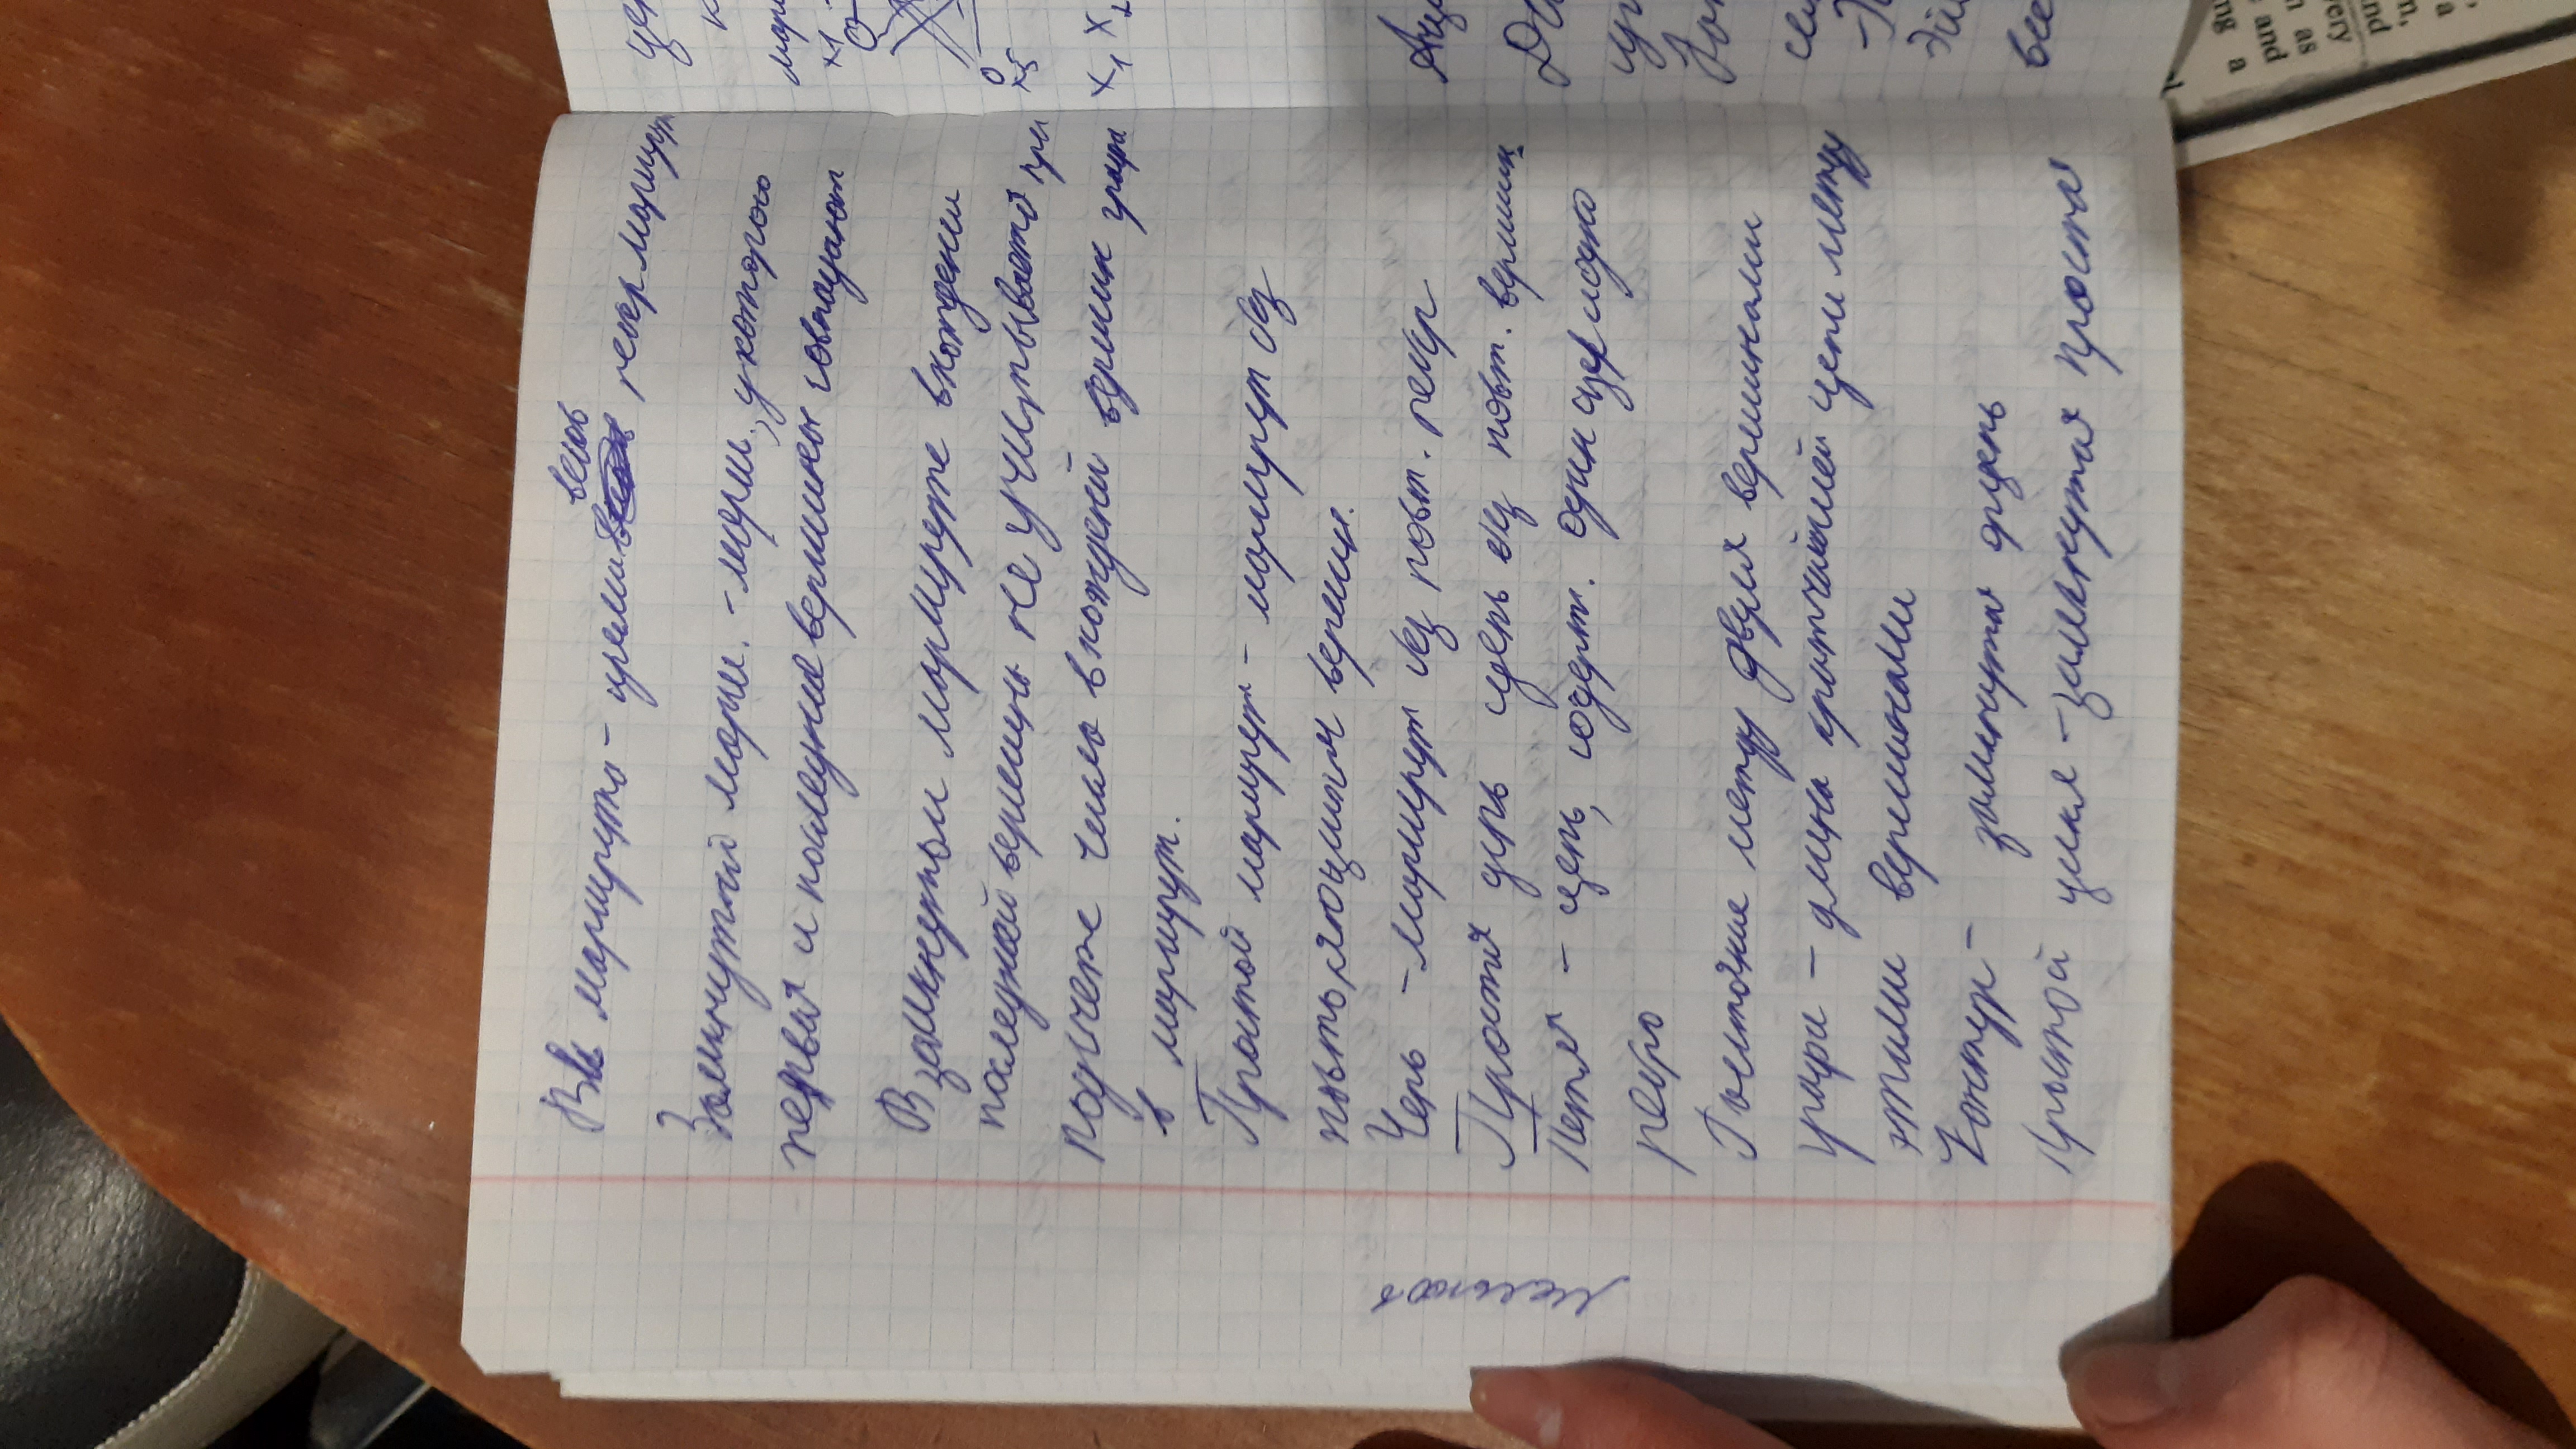 весов
маршрута - рёбер маршрут
Замкнутый марш. - марш., у которого
первая и последняя вершины совпадают
В замкнутом маршруте вхождении
последней вершины не учитывается при
подсчете числа вхождений вершин графа
в маршрут.
Простой маршрут - маршрут без
повторяющихся вершин.
Цепь - маршрут без повт. ребер
Простая цепь цепь без повт. вершин.
Петля - цепь, содерж. один
ребро
между двумя вершинами
графа - длина кратчайшей цепи между
этими вершинами
Контур - замкнутая орцепь
Простой цикл - замкнутая простая
Мельников
x1
x5
x1 x2
ing a
and
as